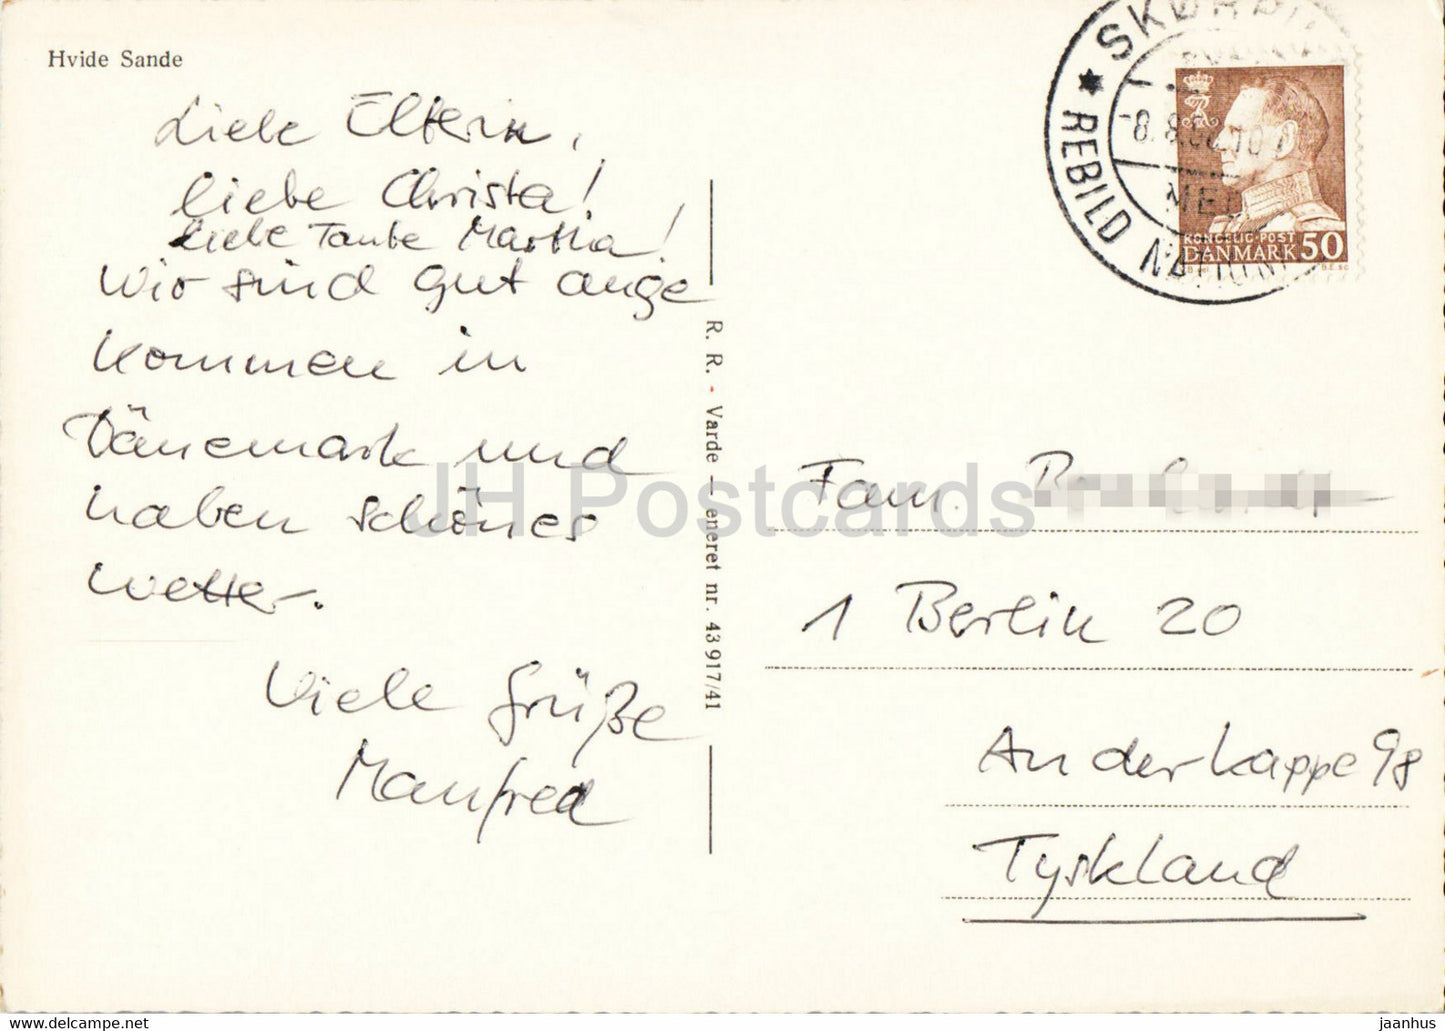 Hvide Sande
Liebe Eltern,
liebe Christa!
liebe Tante Martha!
Wir sind gut ange
kommen in
Dänemark und
haben schönes
Wetter.
Viele Grüße
Manfred
R. R. - Varde — eneret nr. 43917/41
REBILD
KONGELIG·POST
DANMARK 50
Fam.
1 Berlin 20
An der Kappe 98
Tyskland
JH Postcards
www.delcampe.net
jaanhus